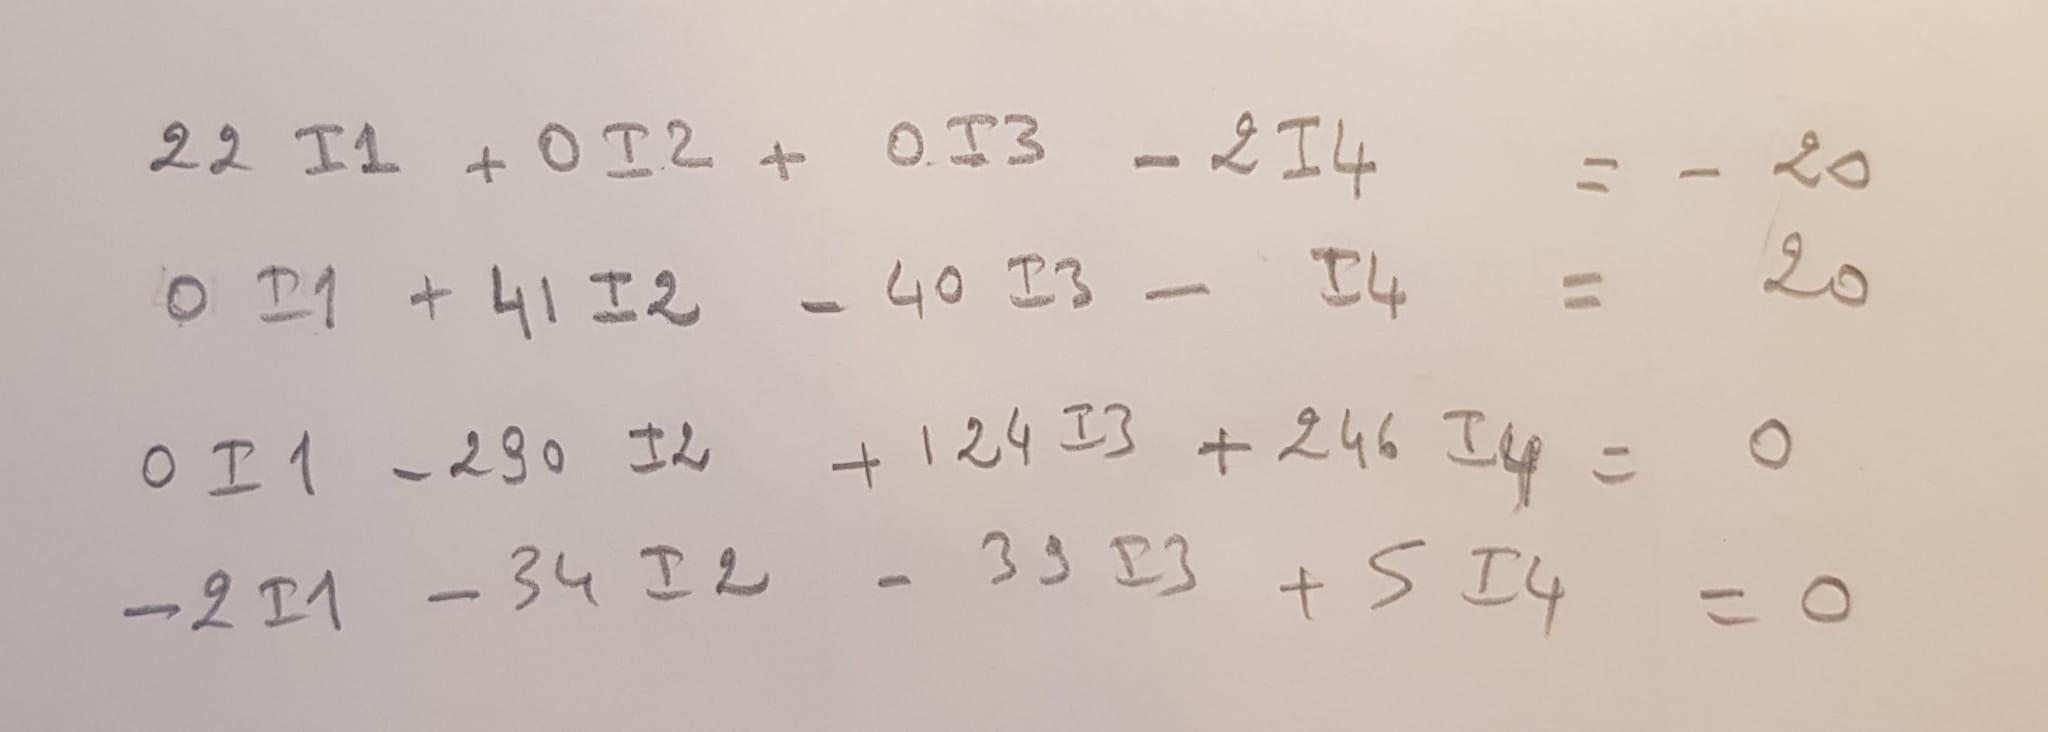 22 I1 + 0 I2 + 0.I3 - 2 I4 = - 20
0 I1 + 41 I2 - 40 I3 - I4 = 20
0 I1 - 290 I2 + 124 I3 + 246 I4 = 0
-2 I1 - 34 I2 - 39 I3 + 5 I4 = 0